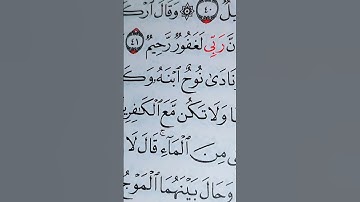 يلٌ ٤٠ ۞ وَقَالَ ٱرْكَ
نَّ رَبِّى لَغَفُورٌ رَّحِيمٌ ٤١
نَادَىٰ نُوحٌ ٱبْنَهُۥ وَكَ
ا وَلَا تَكُن مَّعَ ٱلْكَٰفِرِي
ى مِنَ ٱلْمَآءِ ۚ قَالَ لَا
وَحَالَ بَيْنَهُمَا ٱلْمَوْجُ